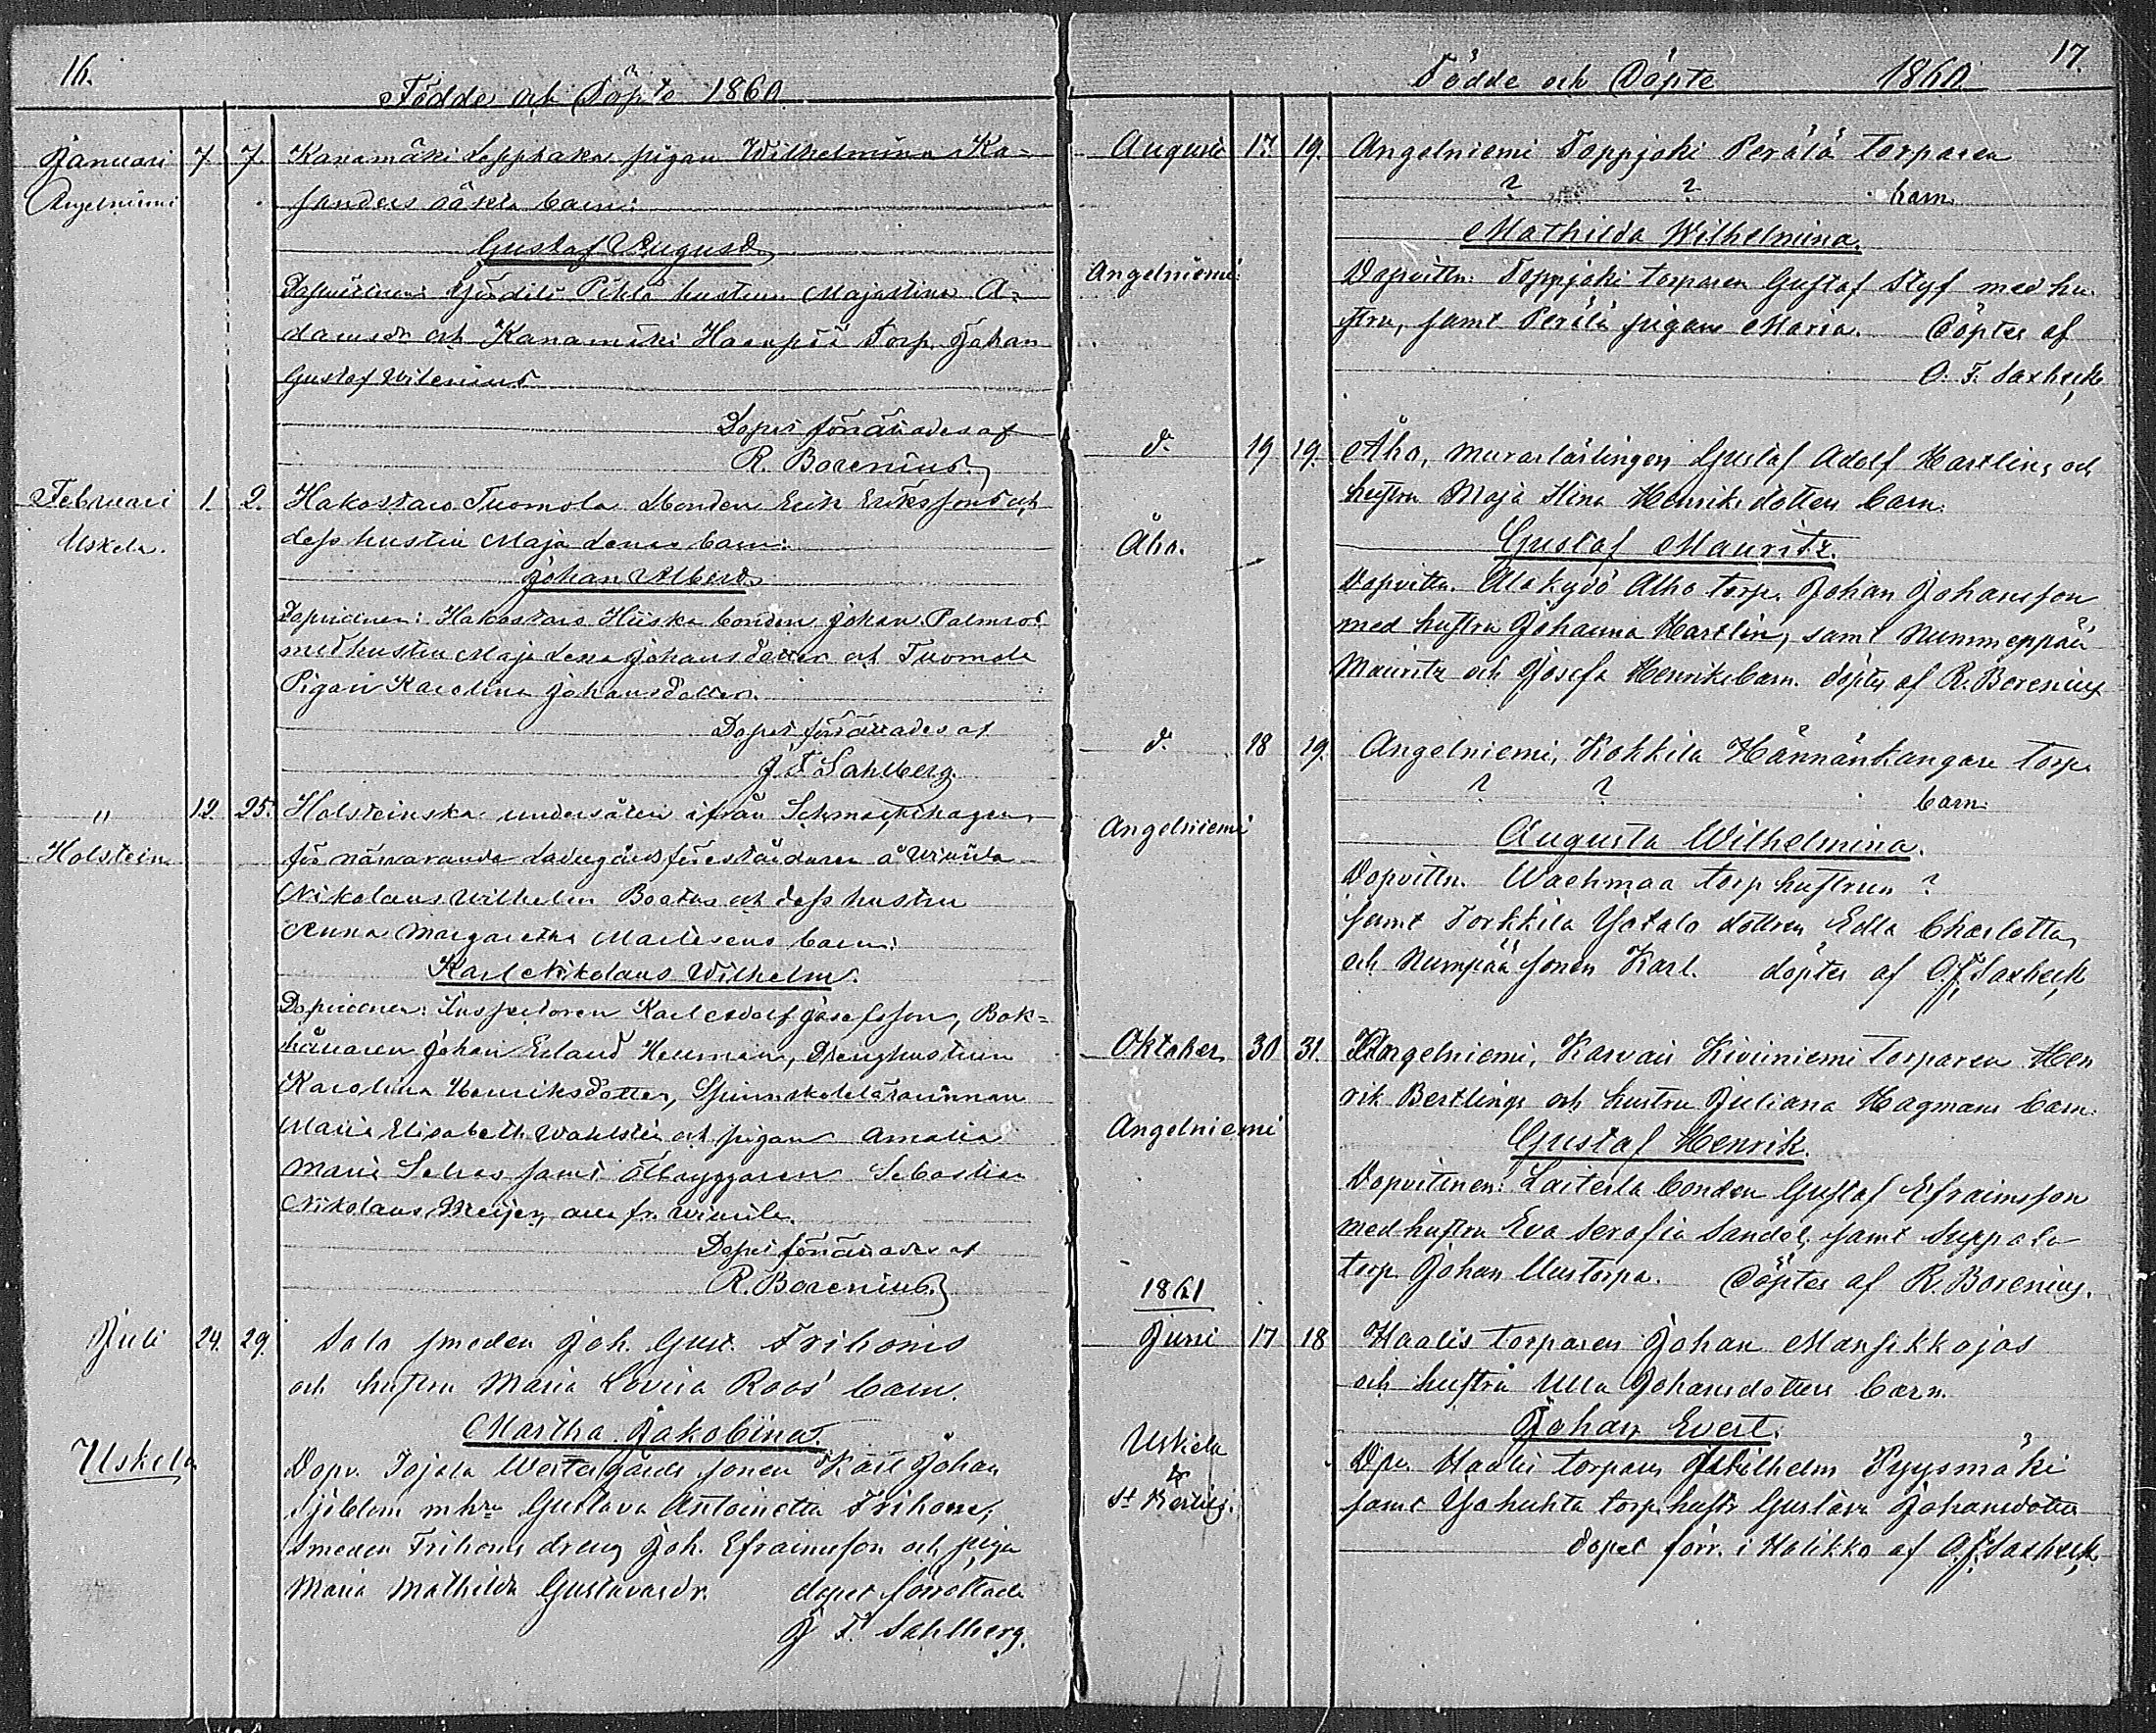 16.
Födde och Döpte 1860
Januari 7. 7. Kanamäki Lepphaka pigan Wilhelmina Ka-
Angelniemi
sanders oäkta barn:
Gustaf August
Pihlä hustrun Majastina A-
damsdr och Kanamäki Haanpää Torp. Johan
Gustaf Vilenius
Dopet förrättades af
R. Borenius.
Februari 1. 2. Hakostaro Tuomola bonden Erik Erikssons och
Uskela.
dess hustru Maja Lenas barn:
Johan Albert
Dopvittnen: Hakostaro Hiiska bonden Johan Palmros
med hustru Maja Lena Johansdotter och Tuomola
Pigan Karolina Johansdotter.
Dopet förrättades af
J. F. Sahlberg.
" 12. 25. Holsteinska undersåten ifrån Schmachthagen
Holstein
för närvarande ladugårdsföreståndaren å Wiurila
Nikolaus Wilhelm och dess hustru
Anna Margaretha barn:
Karl Nikolaus Wilhelm.
Dopvittnen: Inspektoren Karl Adolf Josefsson, Bok-
hållaren Johan Erland Heurman, Drenghustrun
Karolina Henriksdotter, Spinnskolelärarinnan
Maria Elisabeth Wahlstén och pigan Amalia
Maria samt Ölbryggaren Sebastian
Nikolaus Meijer, alla fr. Wiurila.
Dopet förrättades af
R. Borenius.
Juli 24. 29. Salo smeden Joh. Gust. Trihonis
och hustru Maria Lovisa Roos' barn.
Martha Jakobina.
Uskela
Dopv. Tojola Westergårds sonen Karl Johan
Sjöblom m hru Gustava Antoinetta Trihone,
Smeden Trihonis dreng Joh. Efraimsson och piga
Maria Mathilda Gustavasdr. dopet förrättade
J. F. Sahlberg.
17.
Födde och Döpte 1860
Augusti 17. 19. Angelniemi Toppjoki Perälä torparen
? ? barn
Mathilda Wilhelmina.
Angelniemi
Dopvittn: Toppjoki torparen Gustaf Styf med hu-
stru, samt Perälä pigan Maria. Döptes af
O. F. Saxbeck
d. 19 19. Åbo, murarlärlingen Gustaf Adolf Hartlins och
hustru Maja Stina Henriksdotters barn.
Åbo.
Gustaf Mauritz.
Dopvittn. Alakydö Alho torp. Johan Johansson
med hustru Johanna Hartlin, samt Nummenpää
Mauritz och Josefa Henriksbarn. döptes af R. Borenius
d. 18 19. Angelniemi, Kokkila Hännänkangare torp.
? ? barn
Angelniemi
Augusta Wilhelmina.
Dopvittn. Wachmaa torp hustrun ?
samt Torkkila Yotalo dottren Edla Charlotta
och Numpää sonen Karl. döptes af O. F. Saxbeck
Oktober 30 31. Angelniemi, Karvari Kiviniemi torparen Hen-
rik Bertlings och hustru Juliana Hagmans barn.
Angelniemi
Gustaf Henrik.
Dopvittnen: Laiterla bonden Gustaf Efraimsson
med hustru Eva Serafia Sandel, samt Suppala
torp Johan Uustorpa. Döptes af R. Borenius.
1861
Juni 17 18 Haalis torparen Johan Mansikkojas
och hustru Ulla Johansdotters barn.
Johan Evert.
Uskela
St Bertils.
Dpv. Haalis torparen Wilhelm Syysmäki
samt Yohuhta torp. hustr Gustava Johansdotter
dopet förr. i Halikko af O. F. Saxbeck